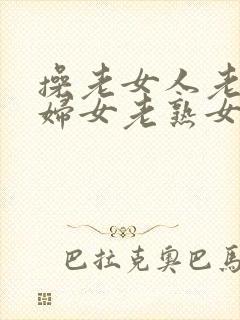 操老女人老
婦女老熟女
巴拉克奧巴馬